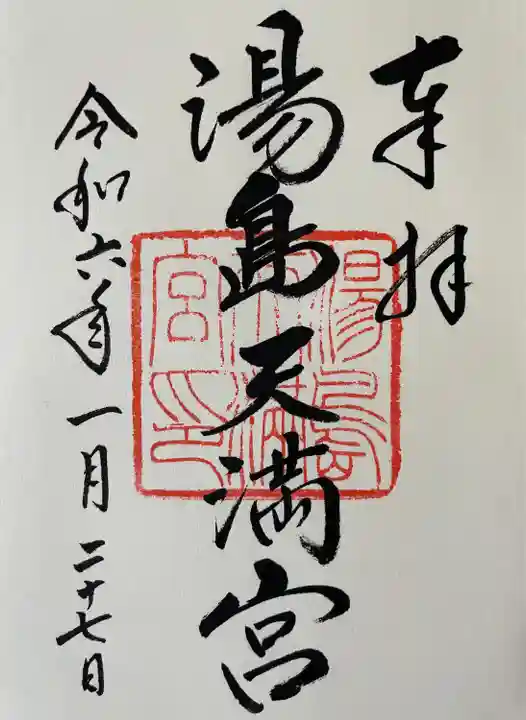 奉拝
湯島天満宮
湯島天満宮印
令和六年一月二十七日